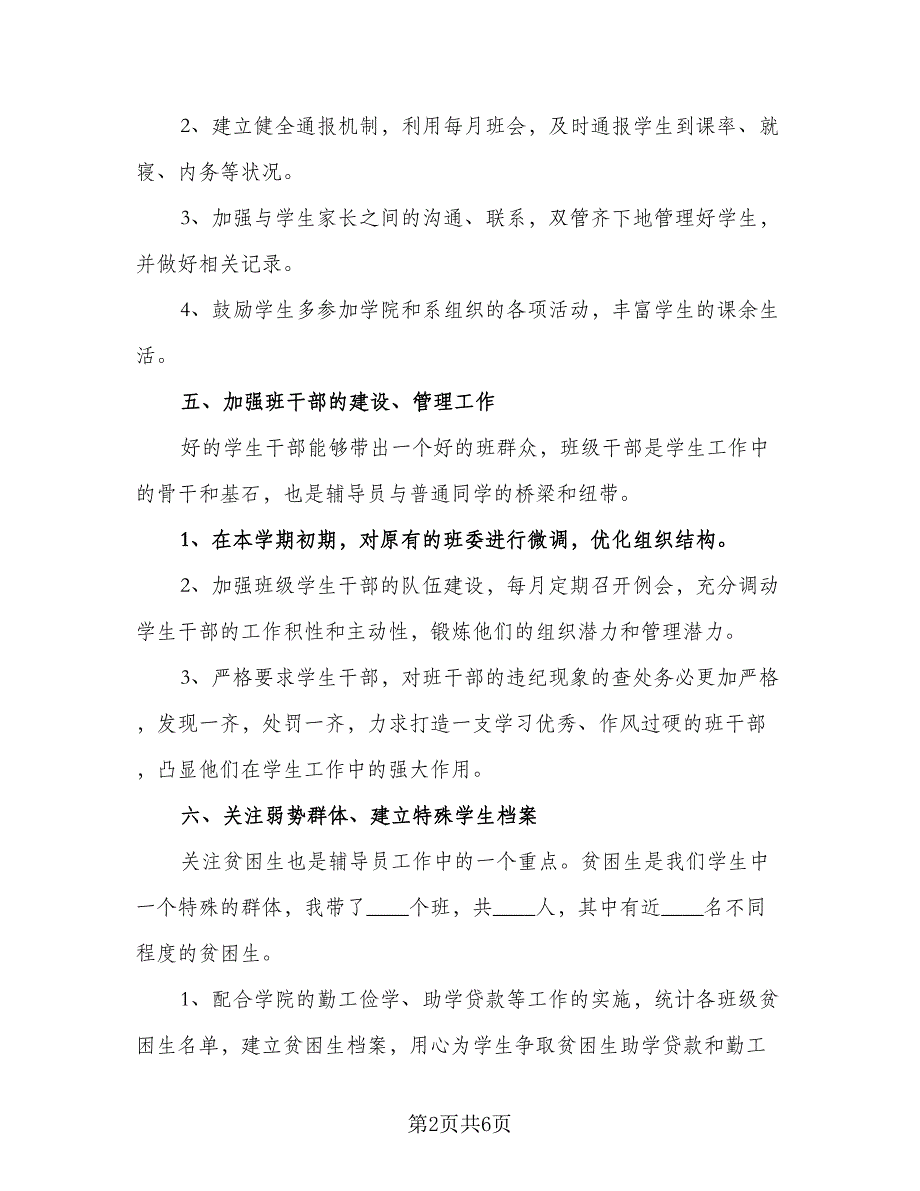 2、建立健全通报机制，利用每月班会，及时通报学生到课率、就
寝、内务等状况。
3、加强与学生家长之间的沟通、联系，双管齐下地管理好学生，
并做好相关记录。
4、鼓励学生多参加学院和系组织的各项活动，丰富学生的课余生
活。
五、加强班干部的建设、管理工作
好的学生干部能够带出一个好的班群众，班级干部是学生工作中
的骨干和基石，也是辅导员与普通同学的桥梁和纽带。
1、在本学期初期，对原有的班委进行微调，优化组织结构。
2、加强班级学生干部的队伍建设，每月定期召开例会，充分调动
学生干部的工作积性和主动性，锻炼他们的组织潜力和管理潜力。
3、严格要求学生干部，对班干部的违纪现象的查处务必更加严格
，发现一齐，处罚一齐，力求打造一支学习优秀、作风过硬的班干部
，凸显他们在学生工作中的强大作用。
六、关注弱势群体、建立特殊学生档案
关注贫困生也是辅导员工作中的一个重点。贫困生是我们学生中
一个特殊的群体，我带了____个班，共____人，其中有近____名不同
程度的贫困生。
1、配合学院的勤工俭学、助学贷款等工作的实施，统计各班级贫
困生名单，建立贫困生档案，用心为学生争取贫困生助学贷款和勤工
第2页共6页